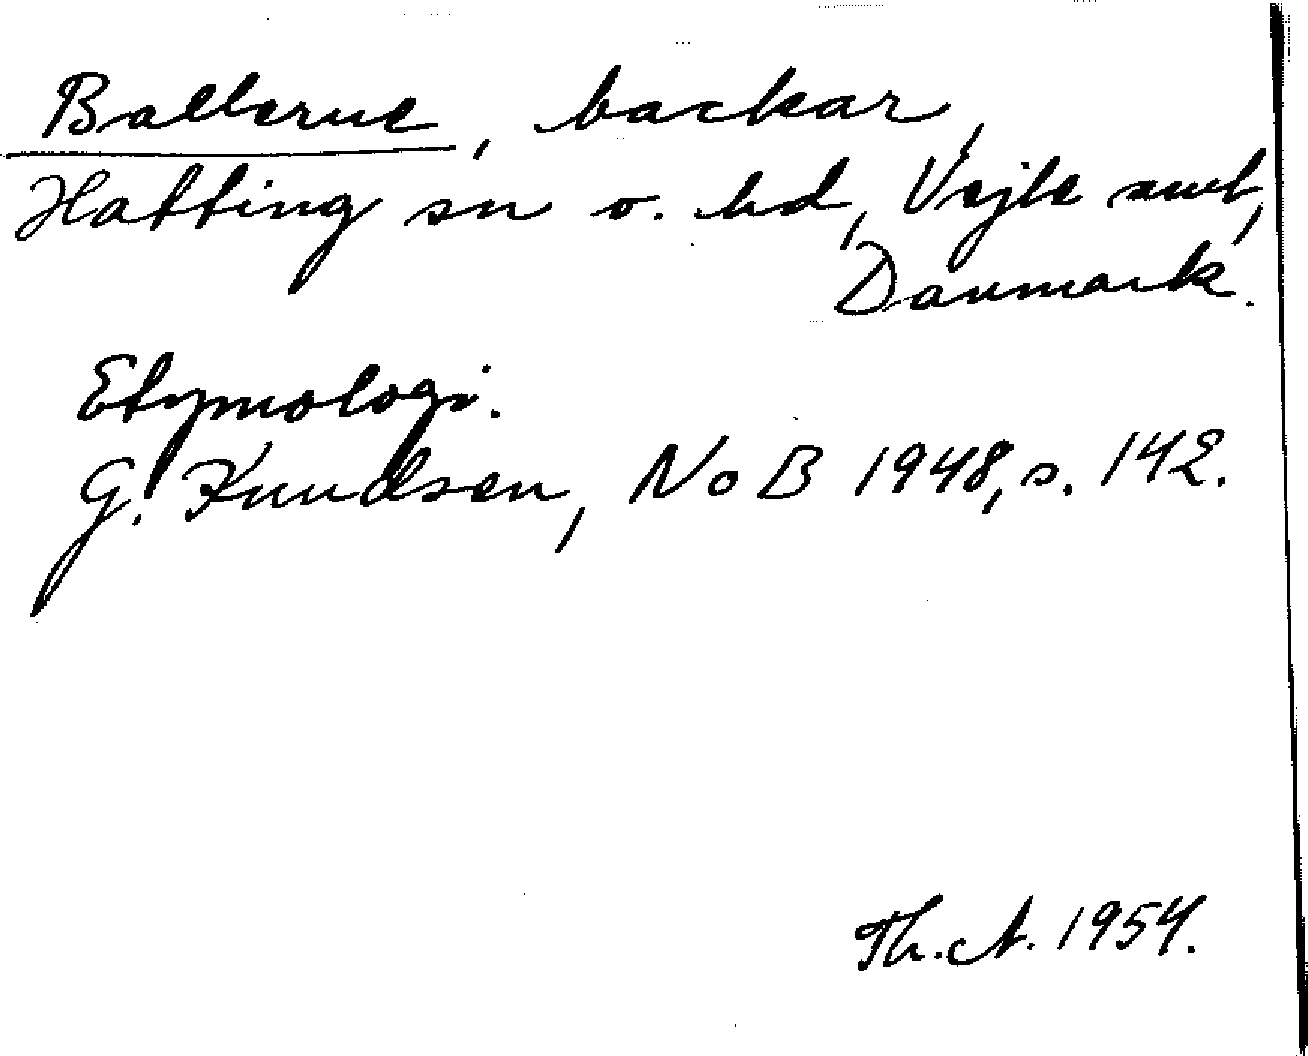 Ballerne, backar,
Hatting sn o. hd, Vejle amt,
Danmark.
Etymologi.
G. Knudsen, NoB 1948, s. 142.
Th. A. 1954.